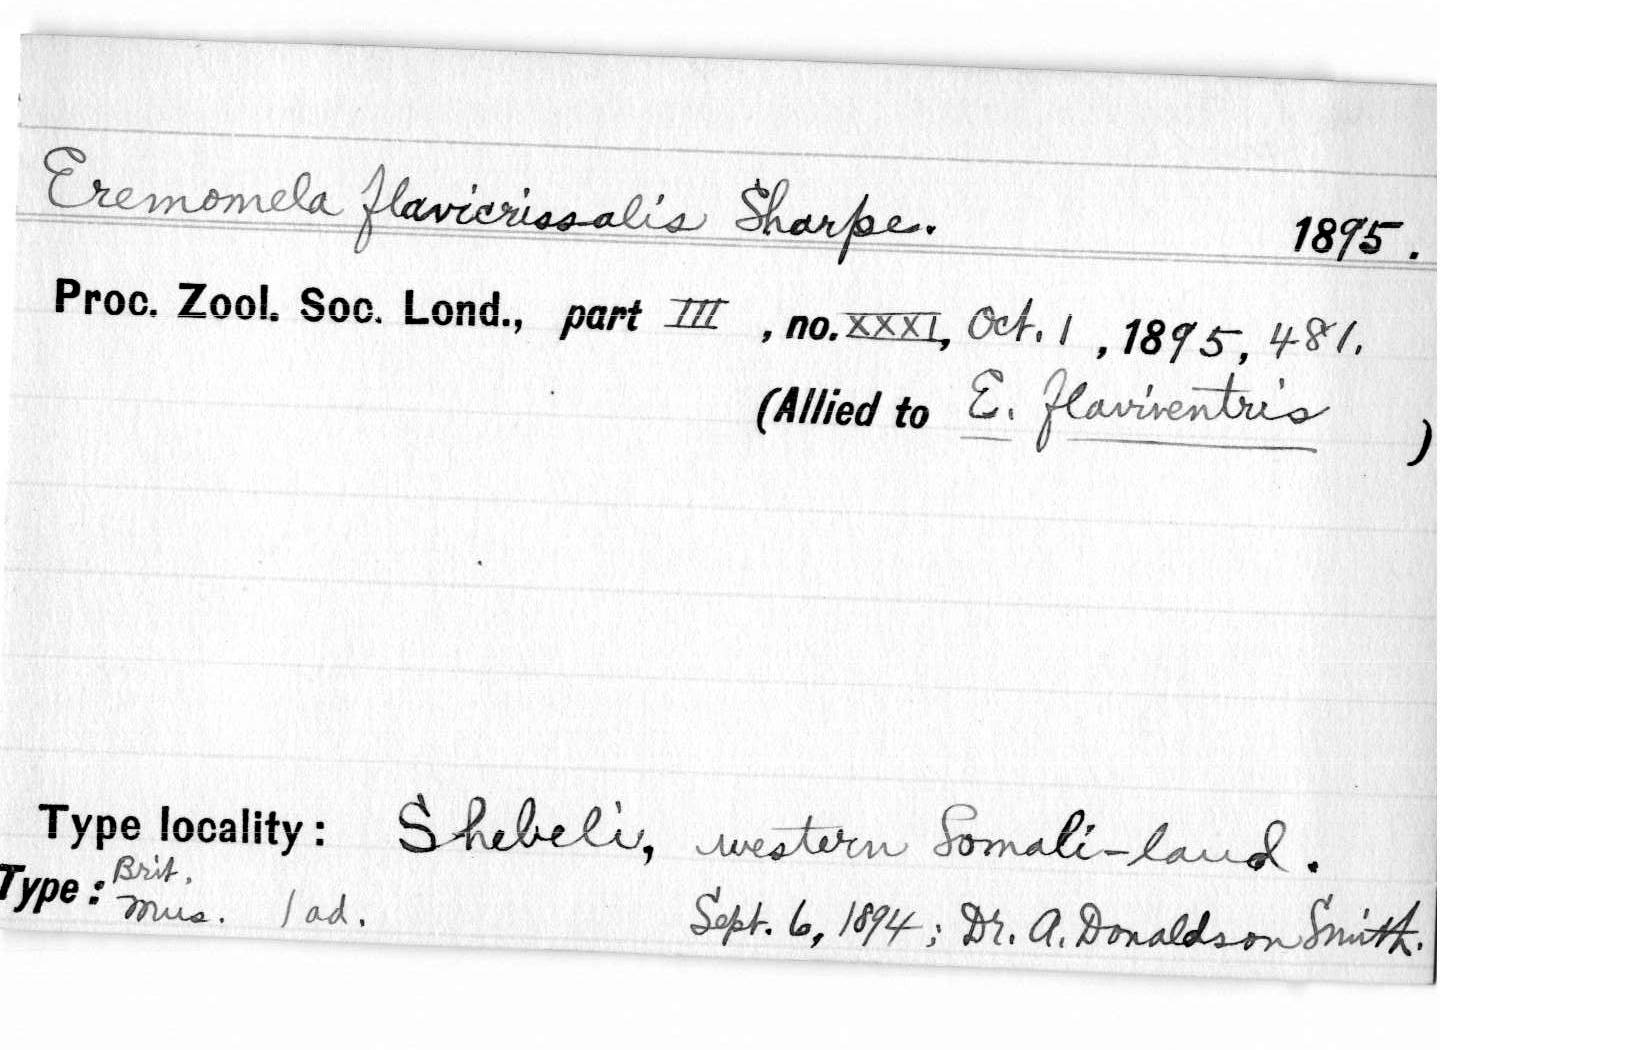 Eremomela flavicrissalis Sharpe. 1895.
Proc. Zool. Soc. Lond., part III, no. XXXI, Oct. 1, 1895, 481.
(Allied to E. flaviventris )
Type locality: Shebeli, western Somali-land.
Type: Brit. Mus. 1 ad. Sept. 6, 1894; Dr. A. Donaldson Smith.